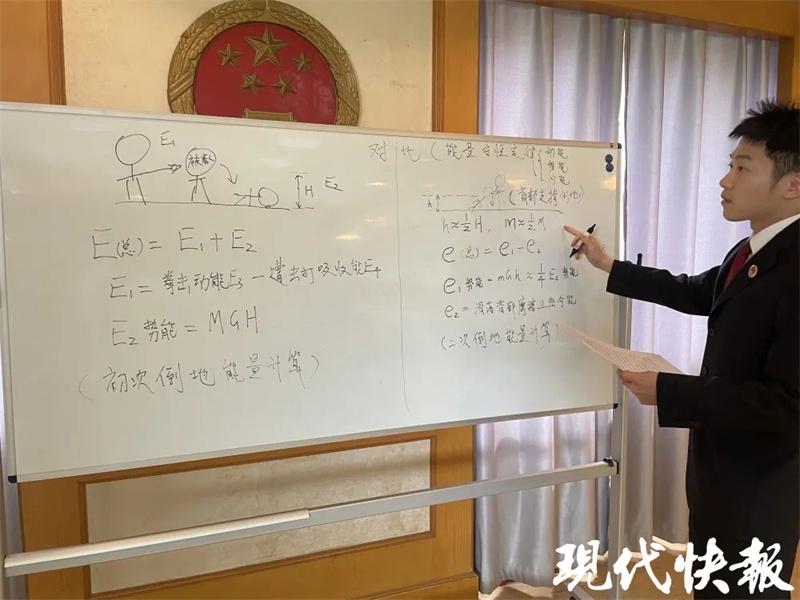 E₁
被害人
H E₂
E(总) = E₁ + E₂
E₁ = 拳击动能E₃ — 击打吸收能E₄
E₂势能 = MGH
(初次倒地能量计算)
对比(能量守恒定律
动能
势能
内能
h
(背部支撑倒地)
h≈½H, m≈½M
e(总) = e₁-e₂
e₁势能 = mgh ≈ ¼E₂势能
e₂ = 滑落背部摩擦
(二次倒地能量计算)
现代快报